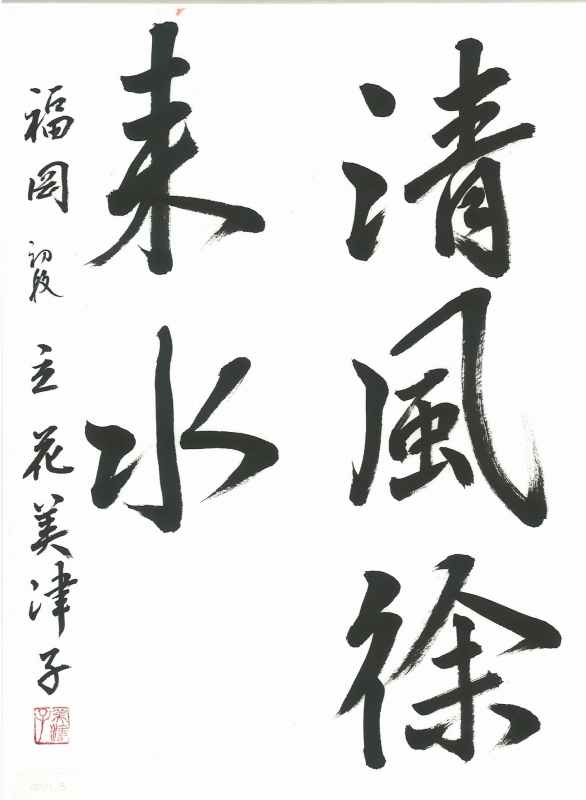 清風徐
来水
福岡 初段 立花美津子
美津子
のりしろ